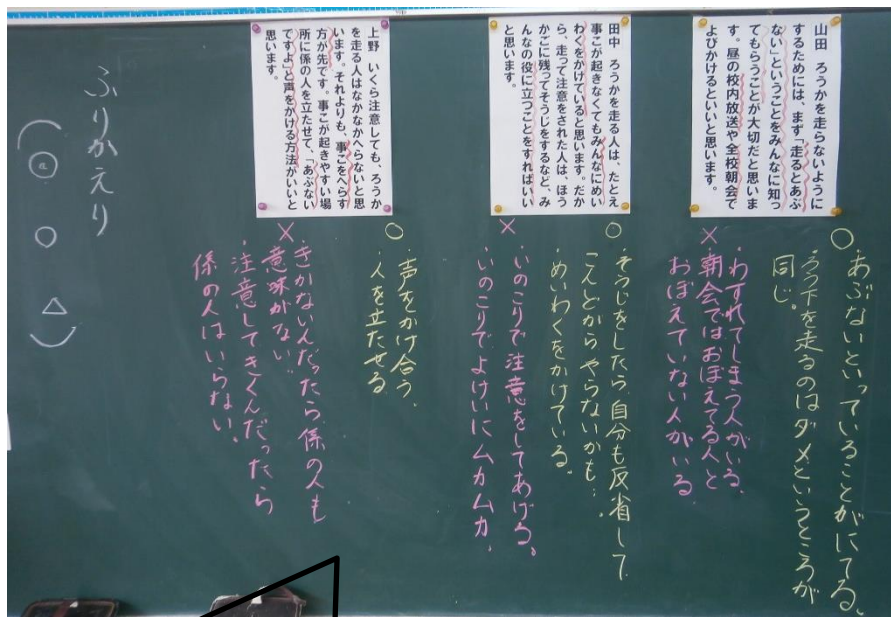 山田 ろうかを走らないように
するためには、まず「走るとあぶ
ない」ということをみんなに知っ
てもらうことが大切だと思いま
す。昼の校内放送や全校朝会で
よびかけるといいと思います。
○
あぶないといっていることがにてる。
ろう下を走るのはダメというところが
同じ。
×
・わすれてしまう人がいる。
朝会ではおぼえてる人と
おぼえていない人がいる
田中 ろうかを走る人は、たとえ
事こが起きなくてもみんなにめい
わくをかけていると思います。だか
ら、走って注意をされた人は、ほう
かごに残ってそうじをするなど、み
んなの役に立つことをすればいい
と思います。
○
・そうじをしたら、自分も反省して
こんどからやらないかも…。
めいわくをかけている。
×
・いのこりで注意をしてあげる。
・いのこりでよけいにムカムカ。
上野 いくら注意しても、ろうか
を走る人はなかなかへらないと思
います。それよりも、事こをへらす
方が先です。事こが起きやすい場
所に係の人を立たせて、「あぶない
ですよ」と声をかける方法がいいと
思います。
○
・声をかけ合う。
・人を立たせる
×
・きかないんだったら係の人も
意味がない。
・注意してきくんだったら
係の人はいらない。
ふりかえり
( ○ ○ △ )